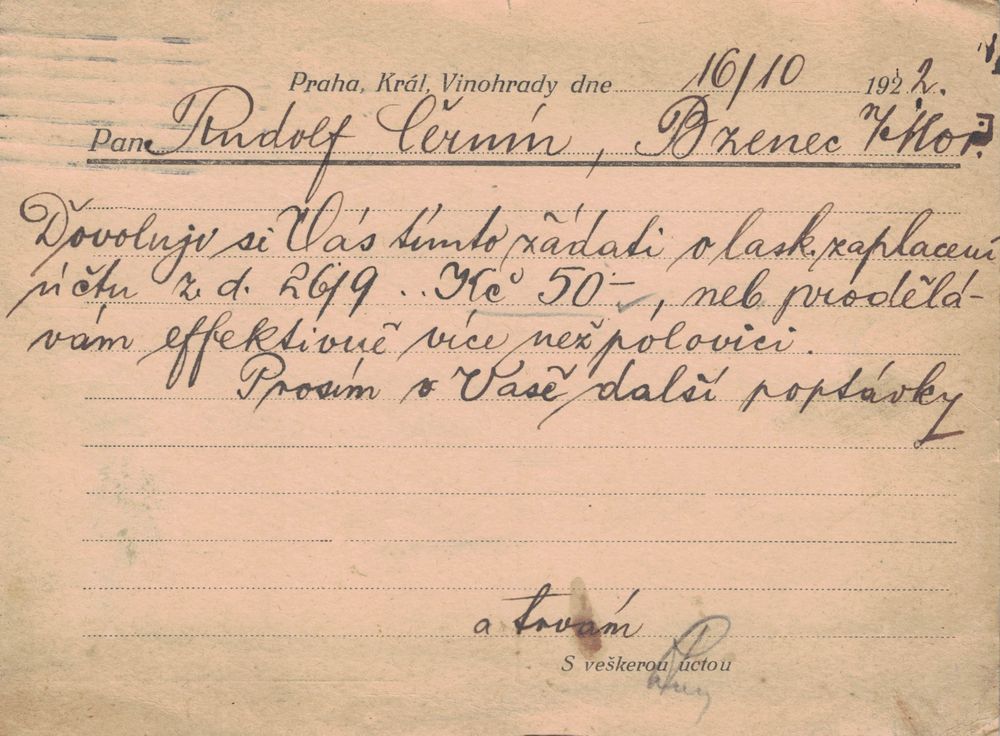 Praha, Král, Vinohrady dne 16/10 1922.
Pan Rudolf Černín, Bzenec n/Mor.
Dovoluji si Vás tímto žádati o lask. zaplacení
účtu z. d. 26/9 .. Kč 50–, neb prodělá-
vám effektivně více než polovici.
Prosím o Vaše další poptávky
a trvám
S veškerou úctou